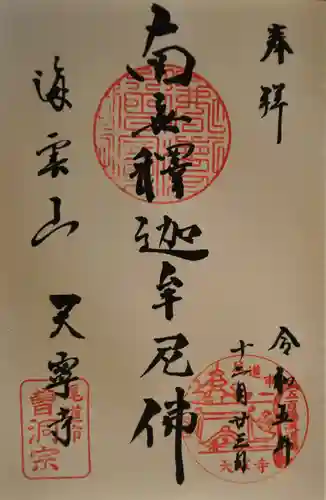 奉拝
令和五年
十二月廿三日
南無釋迦牟尼佛
海雲山
天寧寺
尾道市
曹洞宗